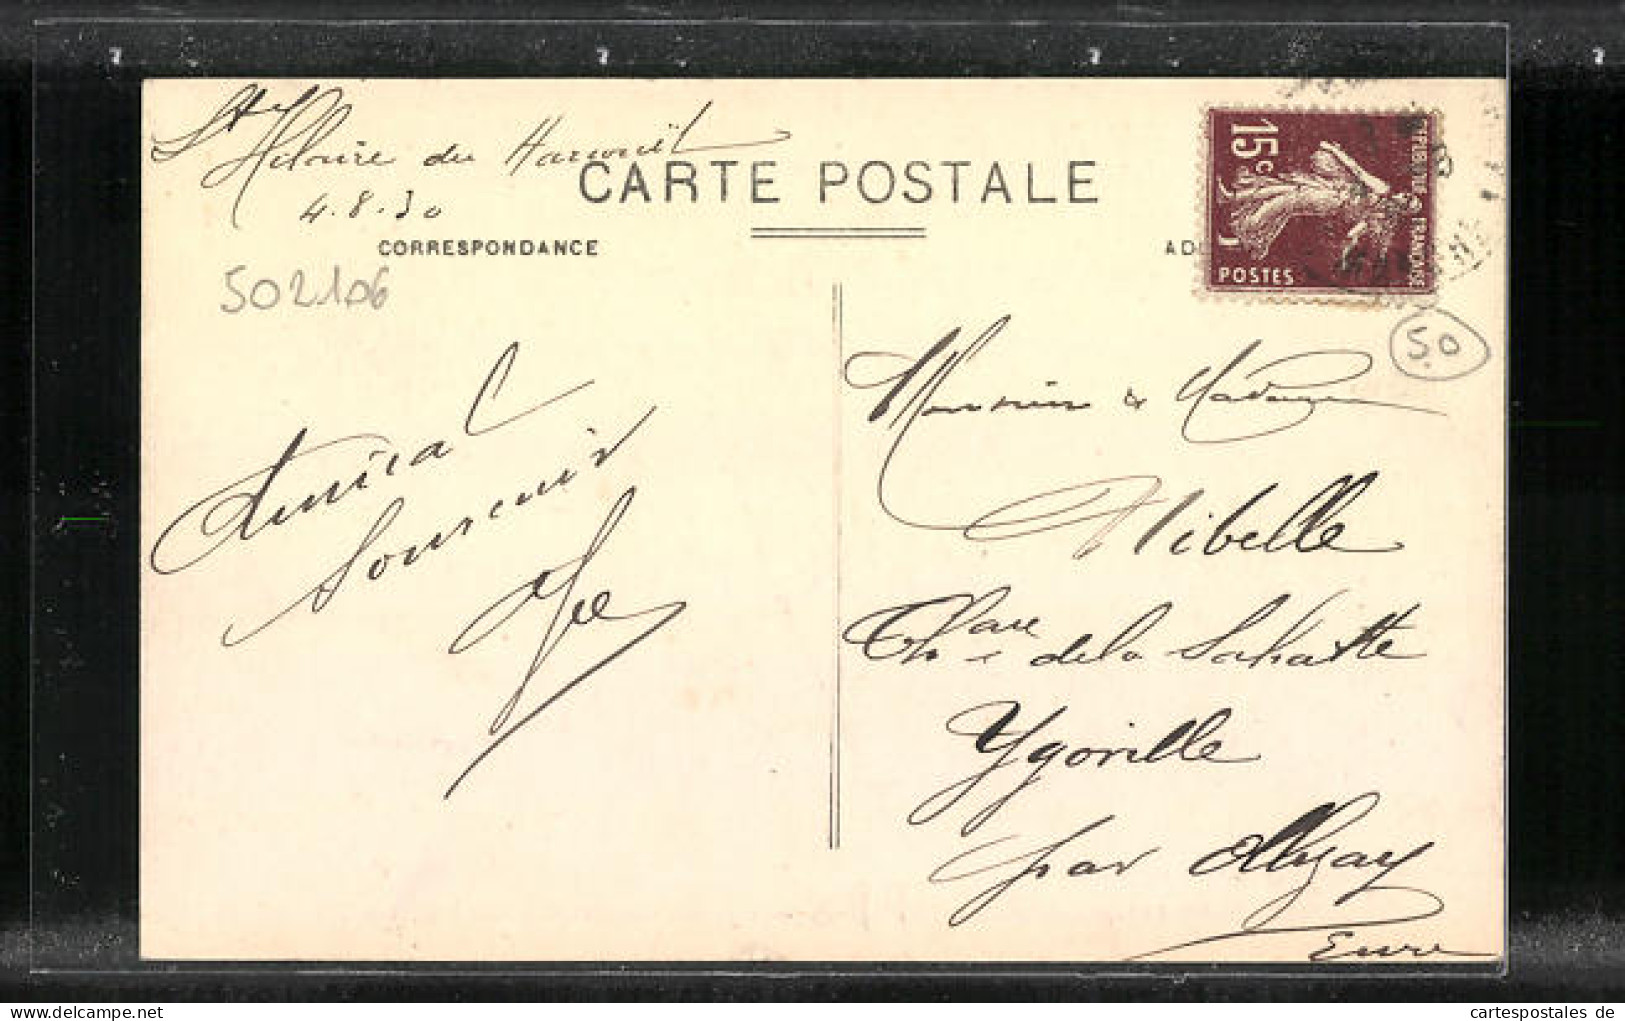 St Hilaire du Harcouët
4.8.30
CARTE POSTALE
CORRESPONDANCE
AD
15c
REPUBLIQUE FRANÇAISE
POSTES
502106
50
Amical
Souvenir
Monsieur & Madame
Nibelle
de la
Ygoville
par Alizay
Eure
cartespostales de